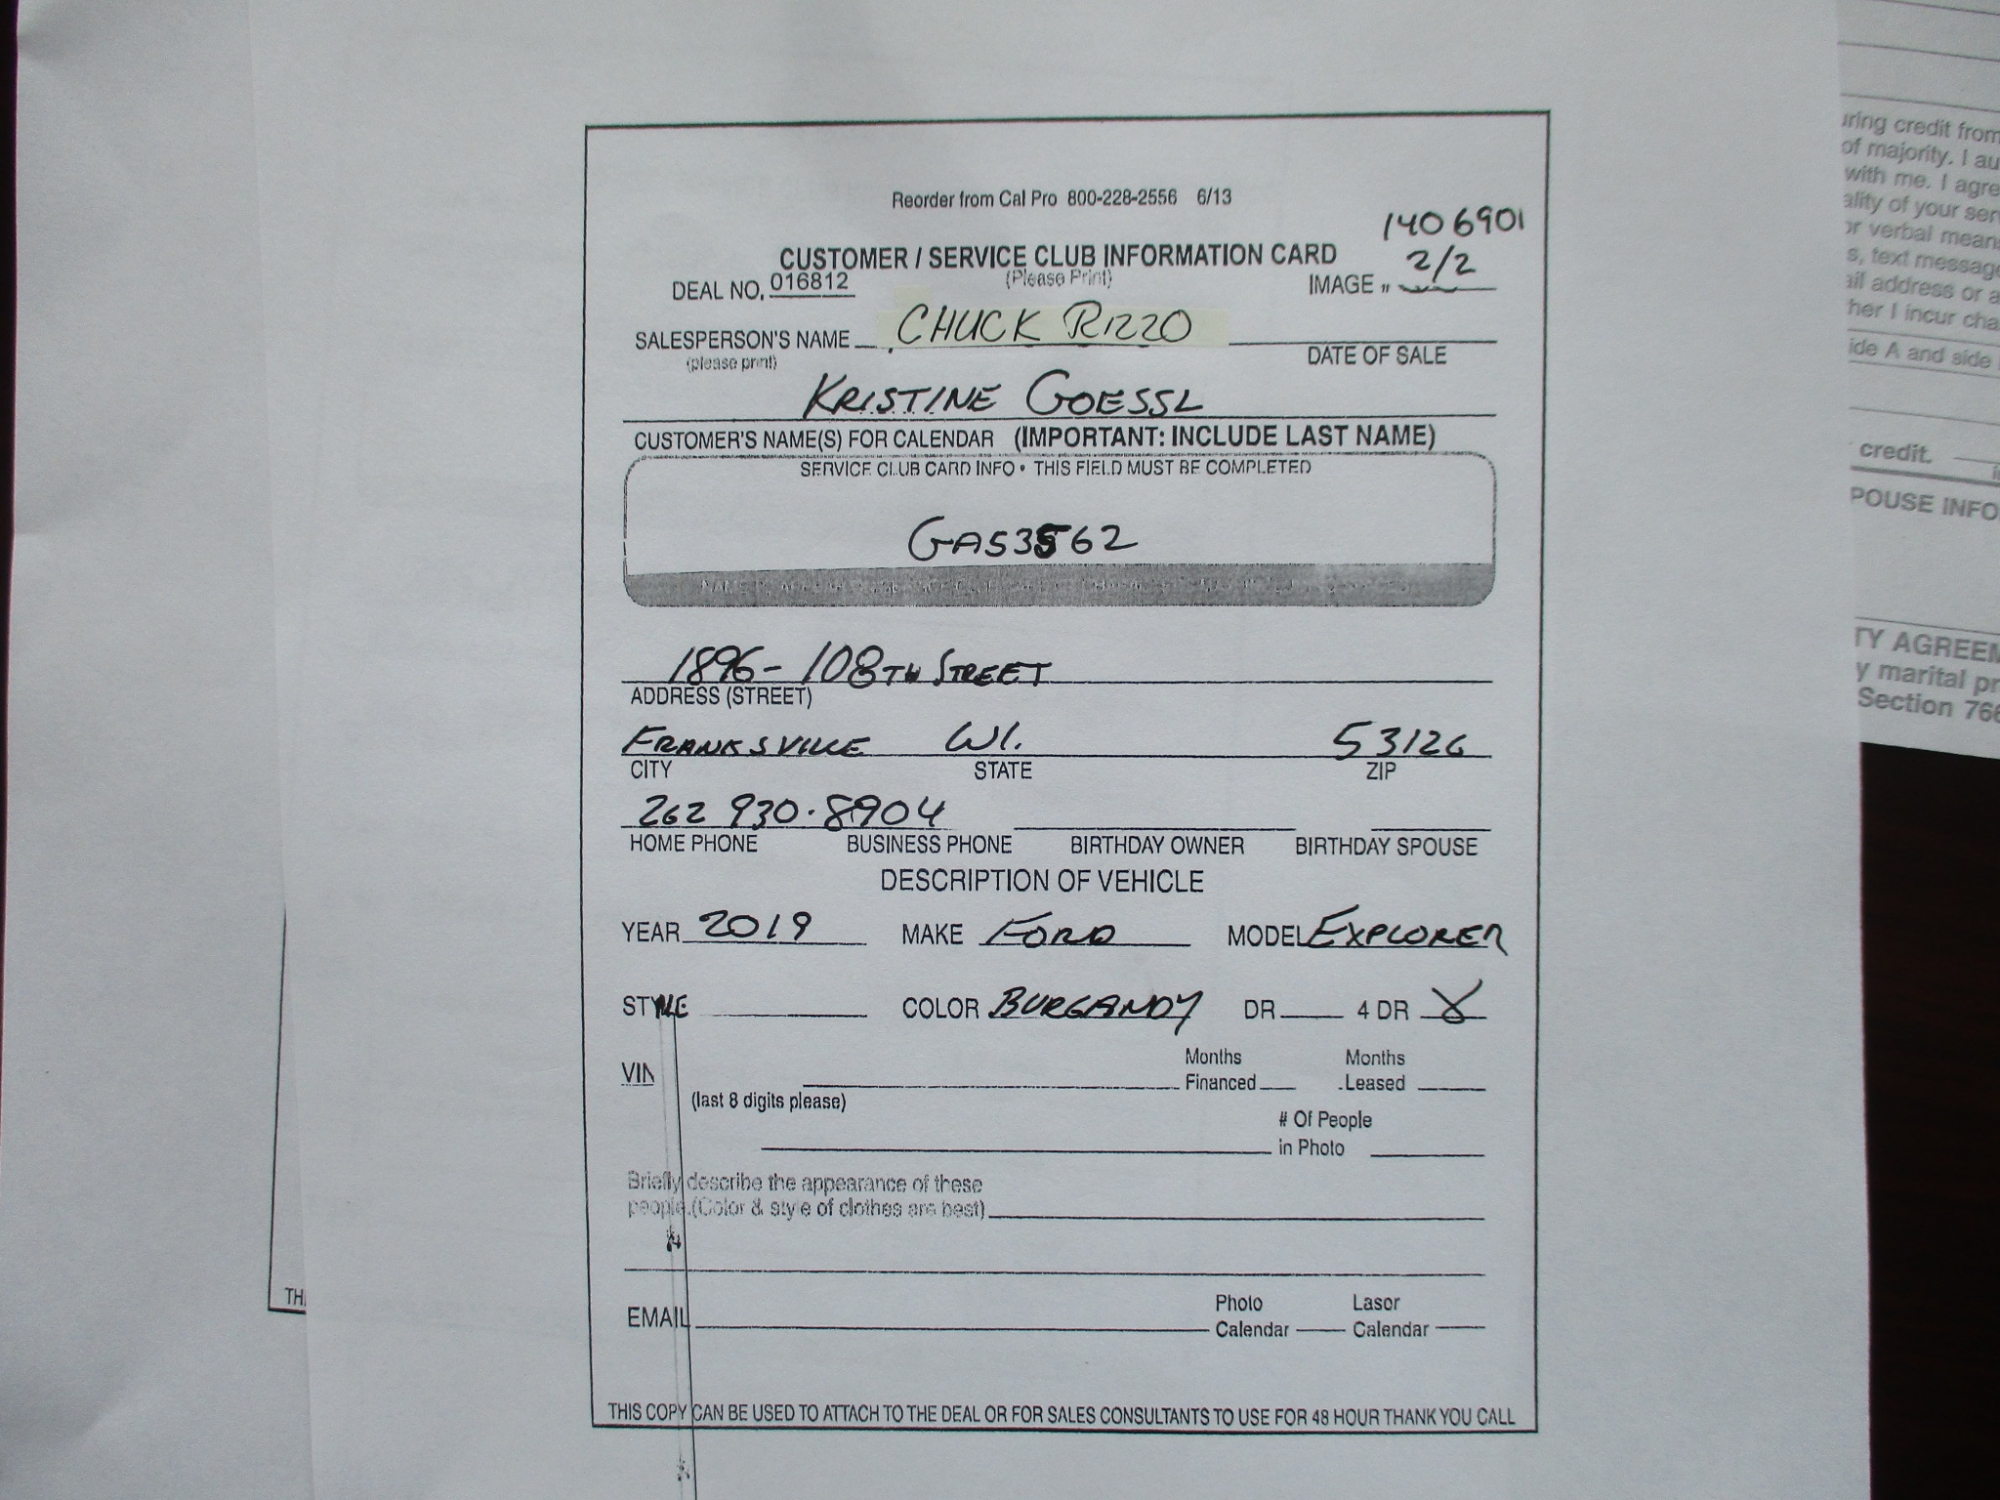 Reorder from Cal Pro 800-228-2556 6/13
1406901
CUSTOMER / SERVICE CLUB INFORMATION CARD
2/2
DEAL NO. 016812 (Please Print) IMAGE #
SALESPERSON'S NAME CHUCK RIZZO
(please print) DATE OF SALE
KRISTINE GOESSL
CUSTOMER'S NAME(S) FOR CALENDAR (IMPORTANT: INCLUDE LAST NAME)
SERVICE CLUB CARD INFO • THIS FIELD MUST BE COMPLETED
GA53562
1896-108TH STREET
ADDRESS (STREET)
FRANKSVILLE WI. 53126
CITY STATE ZIP
262 930·8904
HOME PHONE BUSINESS PHONE BIRTHDAY OWNER BIRTHDAY SPOUSE
DESCRIPTION OF VEHICLE
YEAR 2019 MAKE FORD MODEL EXPLORER
STYLE COLOR BURGANDY DR 4 DR X
VIN Months Financed Months Leased
(last 8 digits please)
# Of People in Photo
Briefly describe the appearance of these
people.(Color & style of clothes are best)
EMAIL Photo Calendar Laser Calendar
THIS COPY CAN BE USED TO ATTACH TO THE DEAL OR FOR SALES CONSULTANTS TO USE FOR 48 HOUR THANK YOU CALL
TH
uring credit from
of majority. I au
with me. I agre
ality of your ser
or verbal mean
s, text message
ail address or a
her I incur cha
ide A and side
credit.
POUSE INFO
TY AGREEM
y marital pr
Section 766